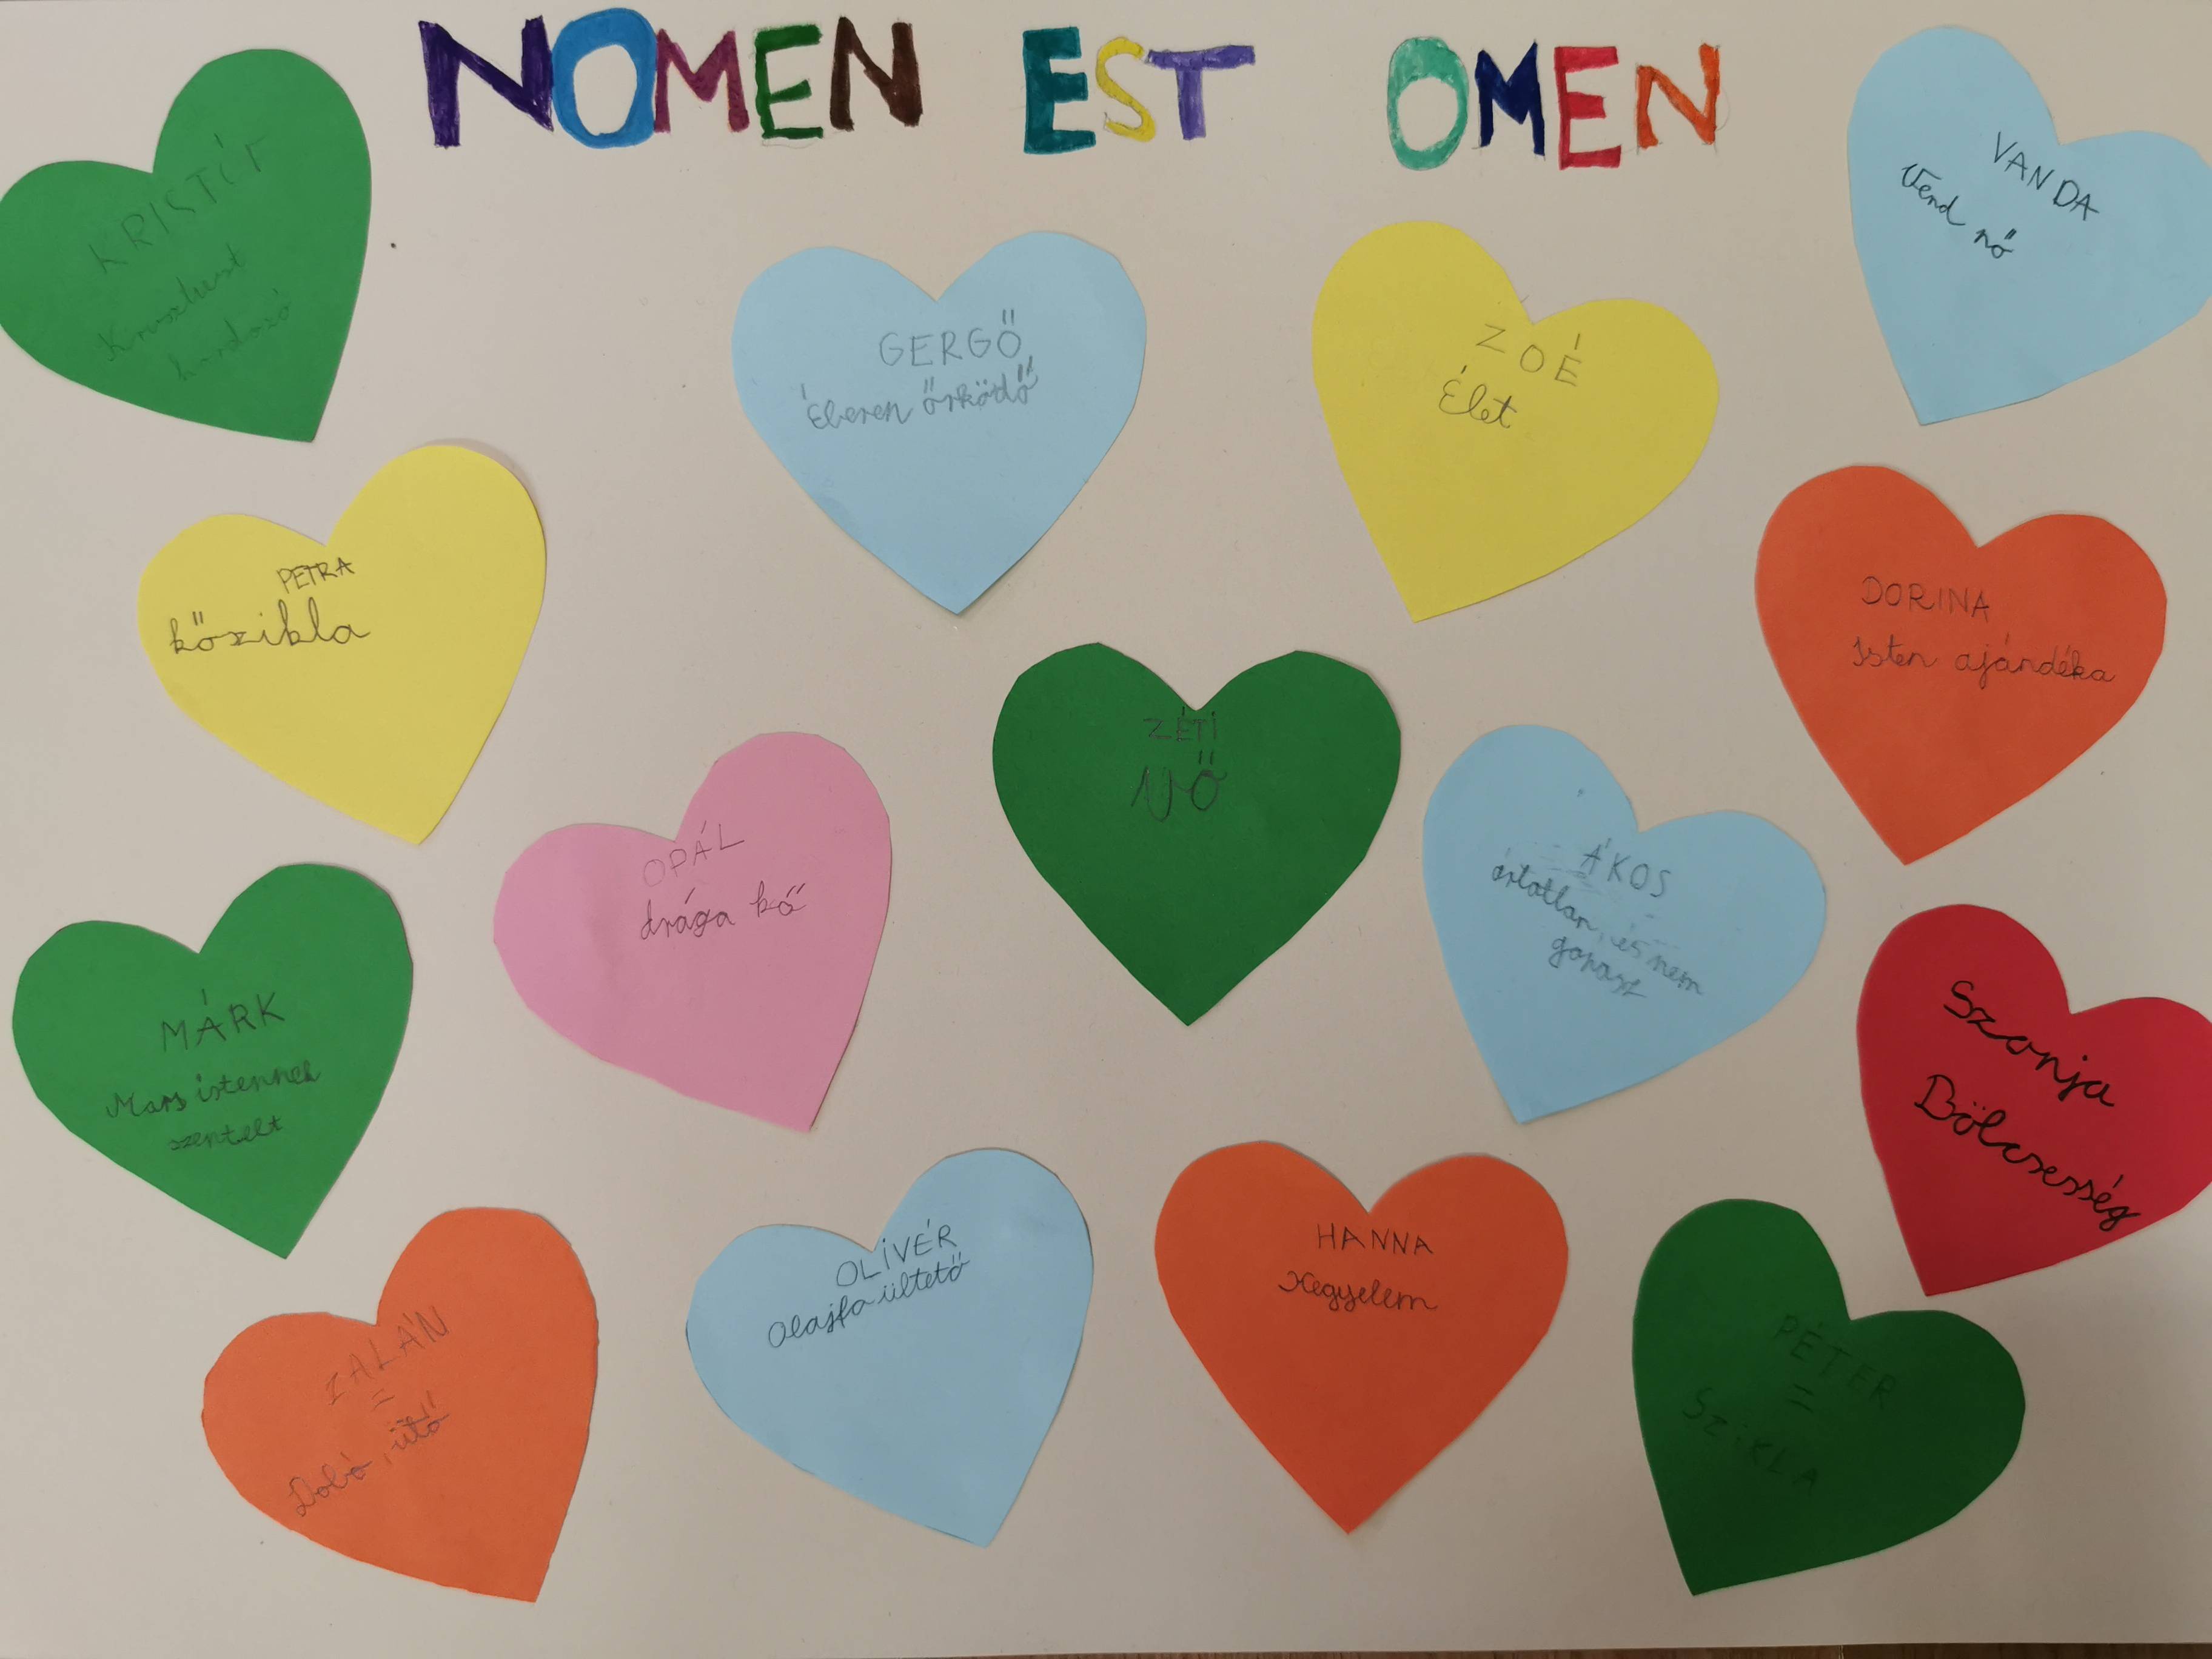 NOMEN EST OMEN
KRISTÓF
Krisztust
hordozó
GERGŐ
Éberen őrködő
ZOÉ
Élet
VANDA
Vend nő
PETRA
kőszikla
DORINA
Isten ajándéka
ZÉTI
NŐ
OPÁL
drága kő
ÁKOS
ártatlan, és nem
gonosz
MÁRK
Mars istennek
szentelt
Szonja
Bölcsesség
OLIVÉR
Olajfa ültető
HANNA
Kegyelem
ZALÁN
=
Dobó, ütő
PÉTER
=
SZIKLA